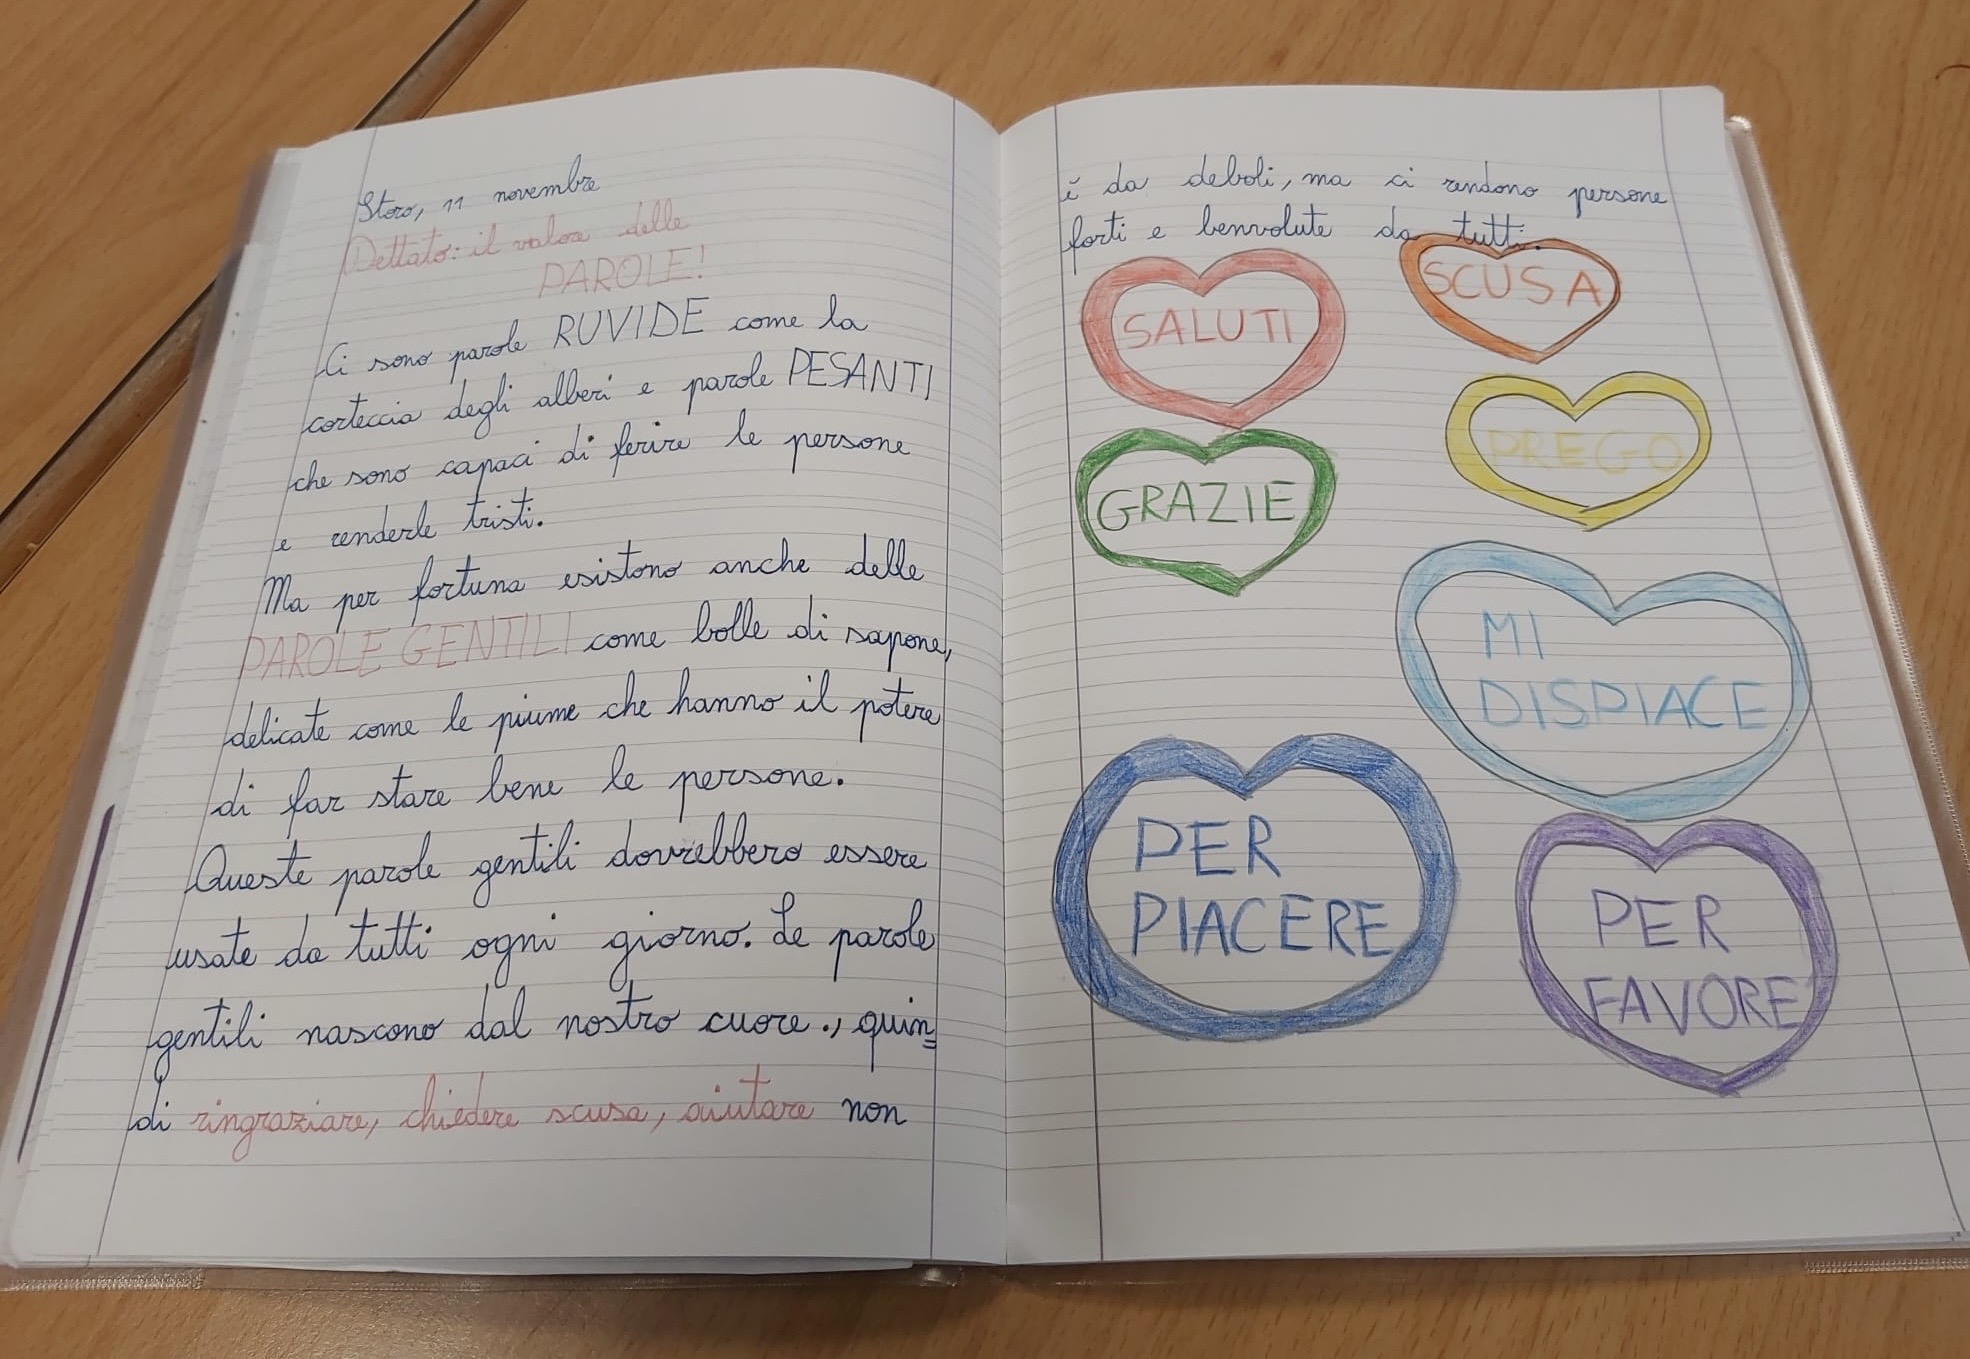 Storo, 11 novembre
Dettato: il valore delle
PAROLE!
Ci sono parole RUVIDE come la
corteccia degli alberi e parole PESANTI
che sono capaci di ferire le persone
e renderle tristi.
Ma per fortuna esistono anche delle
PAROLE GENTILI come bolle di sapone,
delicate come le piume che hanno il potere
di far stare bene le persone.
Queste parole gentili dovrebbero essere
usate da tutti ogni giorno. Le parole
gentili nascono dal nostro cuore., quin=
di ringraziare, chiedere scusa, aiutare non
è da deboli, ma ci rendono persone
forti e benvolute da tutti.
SALUTI
SCUSA
GRAZIE
PREGO
MI
DISPIACE
PER
PIACERE
PER
FAVORE